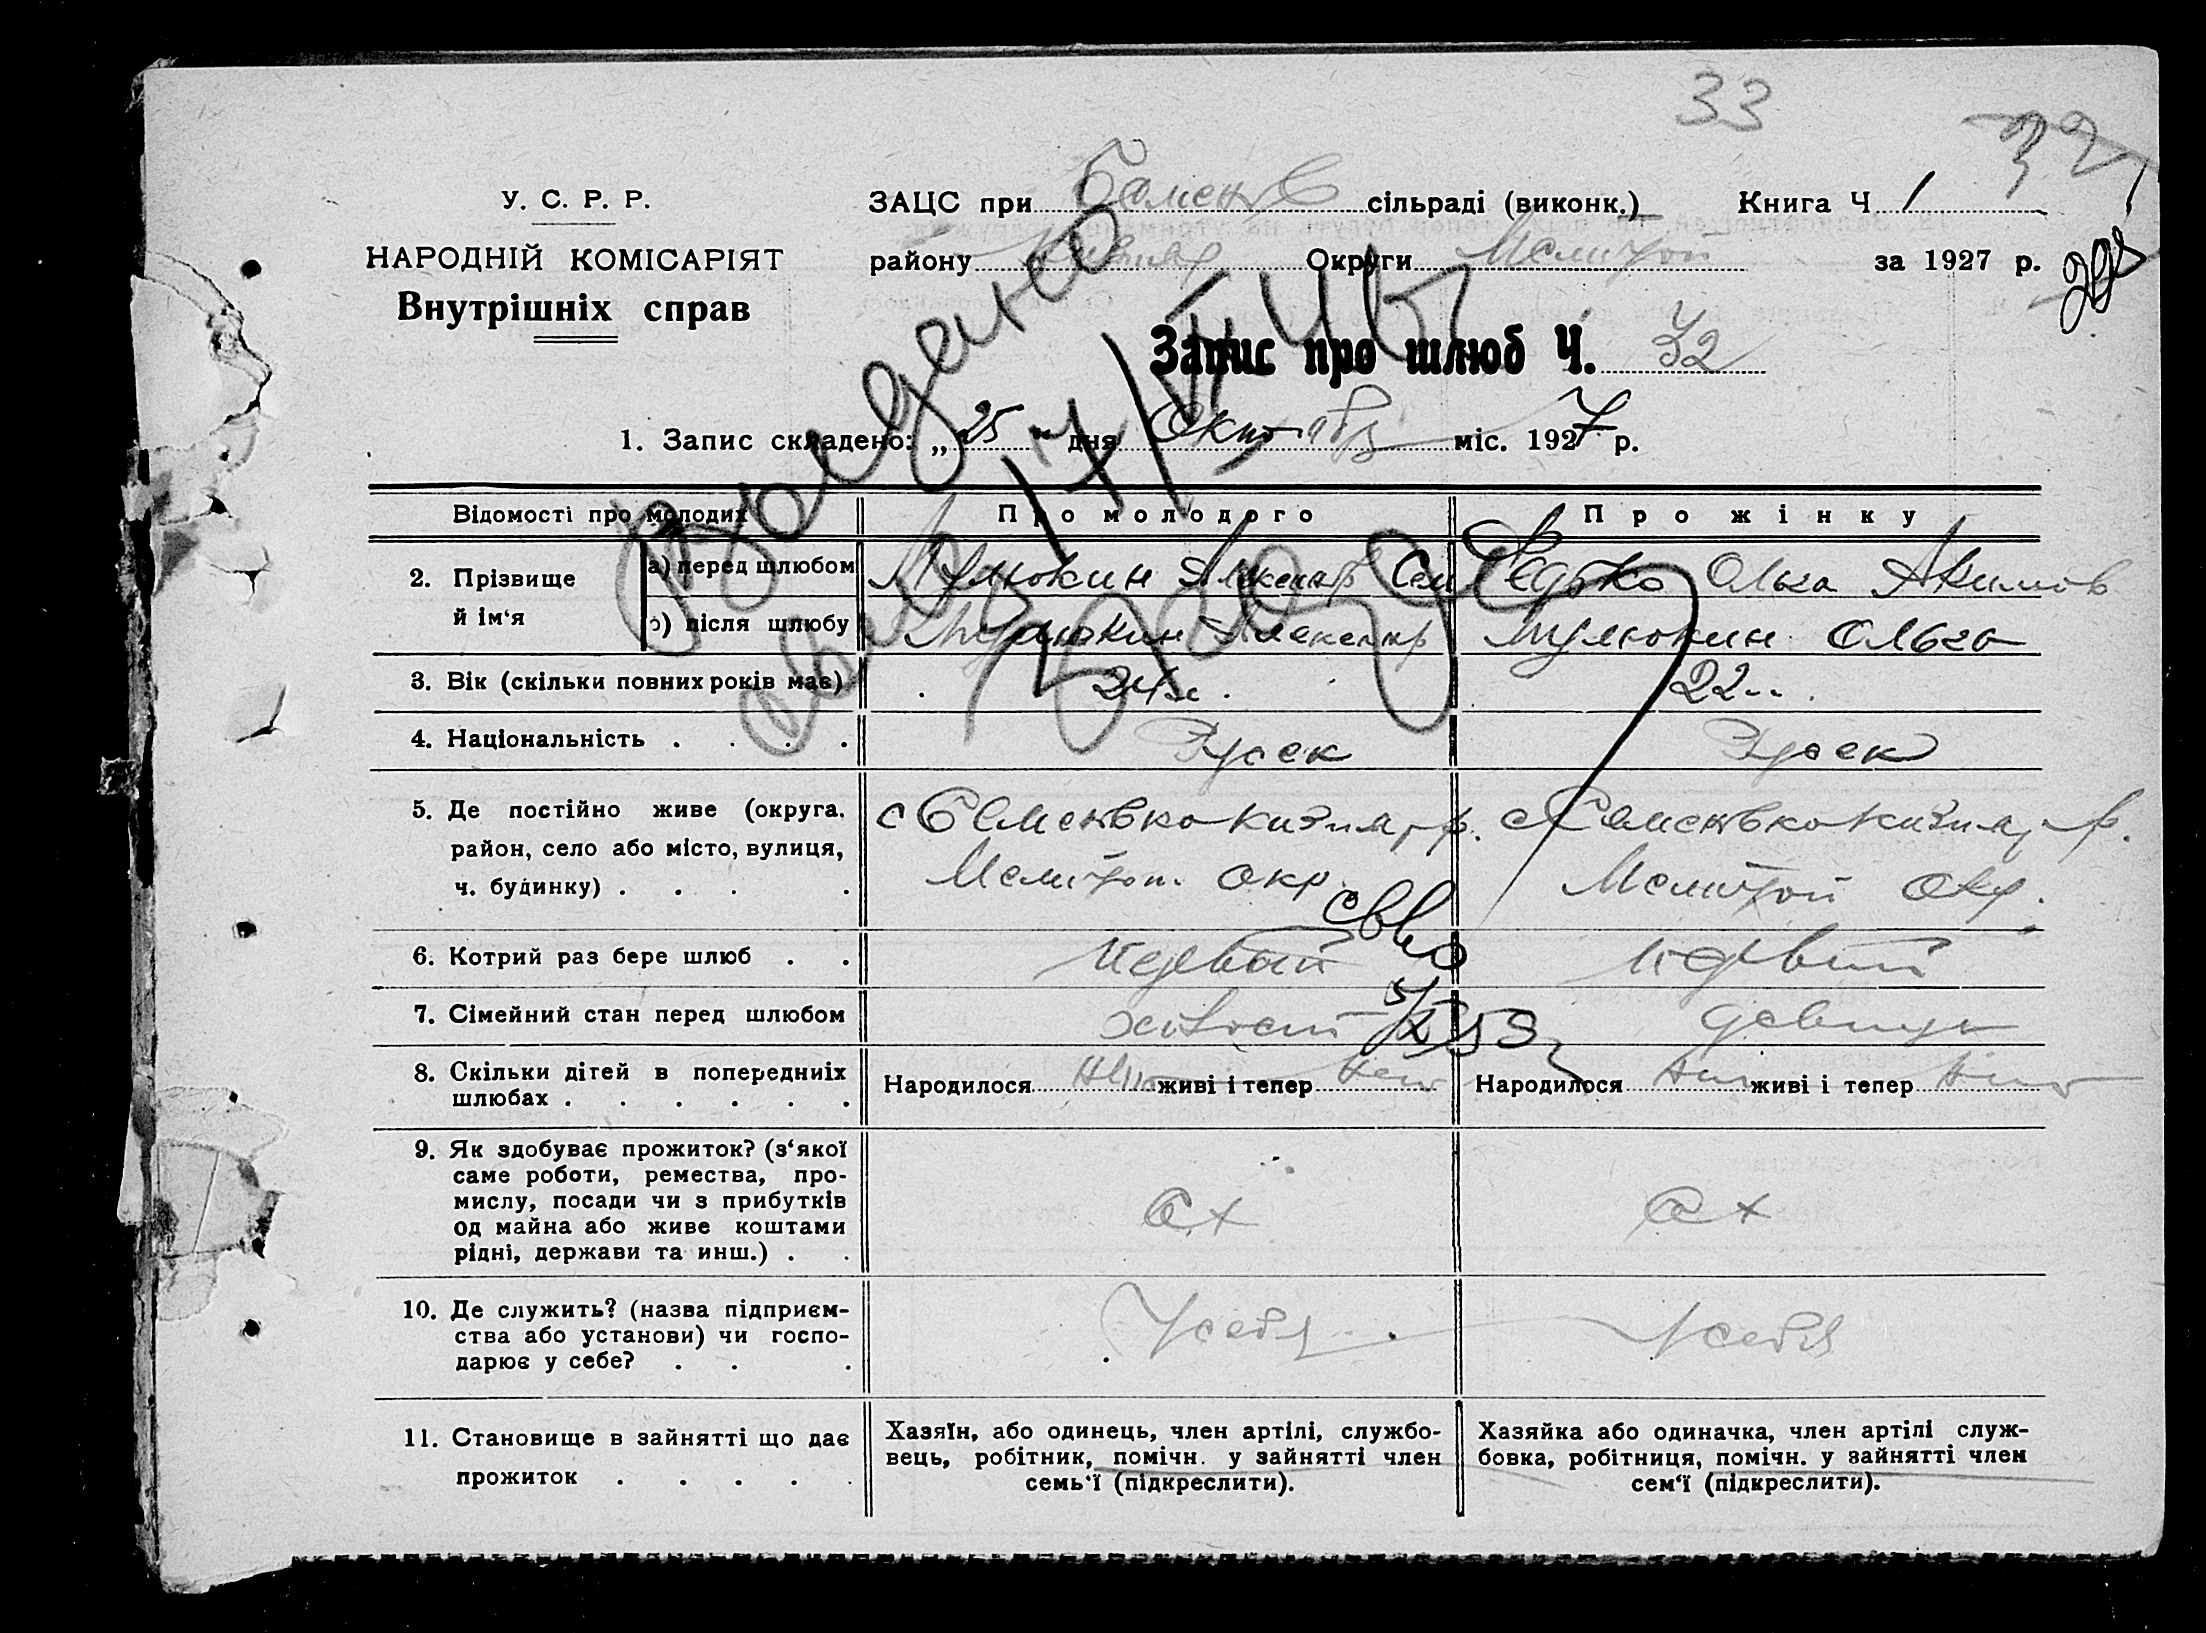 33
32
У. С. Р. Р.
НАРОДНІЙ КОМІСАРІЯТ
Внутрішніх справ
ЗАЦС при сільраді (виконк.) Книга Ч 1
району Округи Мелитоп за 1927 р.
Запис про шлюб Ч. 32
1. Запис складено: „25" дня Октября міс. 1927 р.
Видано
Відомості про молодих Про молодого Про жінку
2. Прізвище й ім‘я
а) перед шлюбом Мулюкин Александр Сем Федько Ольга Акимов
б) після шлюбу Мулюкин Александр Мулюкин Ольга
3. Вік (скільки повних років має) 24 22
4. Національність . . . . Русск Русск
5. Де постійно живе (округа,
район, село або місто, вулиця,
ч. будинку) . . . .
Мелитоп. окр.
Мелитоп окр.
6. Котрий раз бере шлюб . . первый первый
7. Сімейний стан перед шлюбом холост девица
8. Скільки дітей в попередниіх
шлюбах . . . . . .
Народилося нет живі і тепер нет
Народилося нет живі і тепер нет
9. Як здобуває прожиток? (з‘якої
саме роботи, ремества, про-
мислу, посади чи з прибутків
од майна або живе коштами
рідні, держави та инш.) . .
сх
сх
10. Де служить? (назва підприєм-
ства або установи) чи госпо-
дарює у себе? . . .
У себя
У себя
11. Становище в зайнятті що дає
прожиток . . . . .
Хазяїн, або одинець, член артілі, службо-
вець, робітник, помічн. у зайнятті член
семь‘ї (підкреслити).
Хазяйка або одиначка, член артілі служ-
бовка, робітниця, помічн. у зайнятті член
сем‘ї (підкреслити).